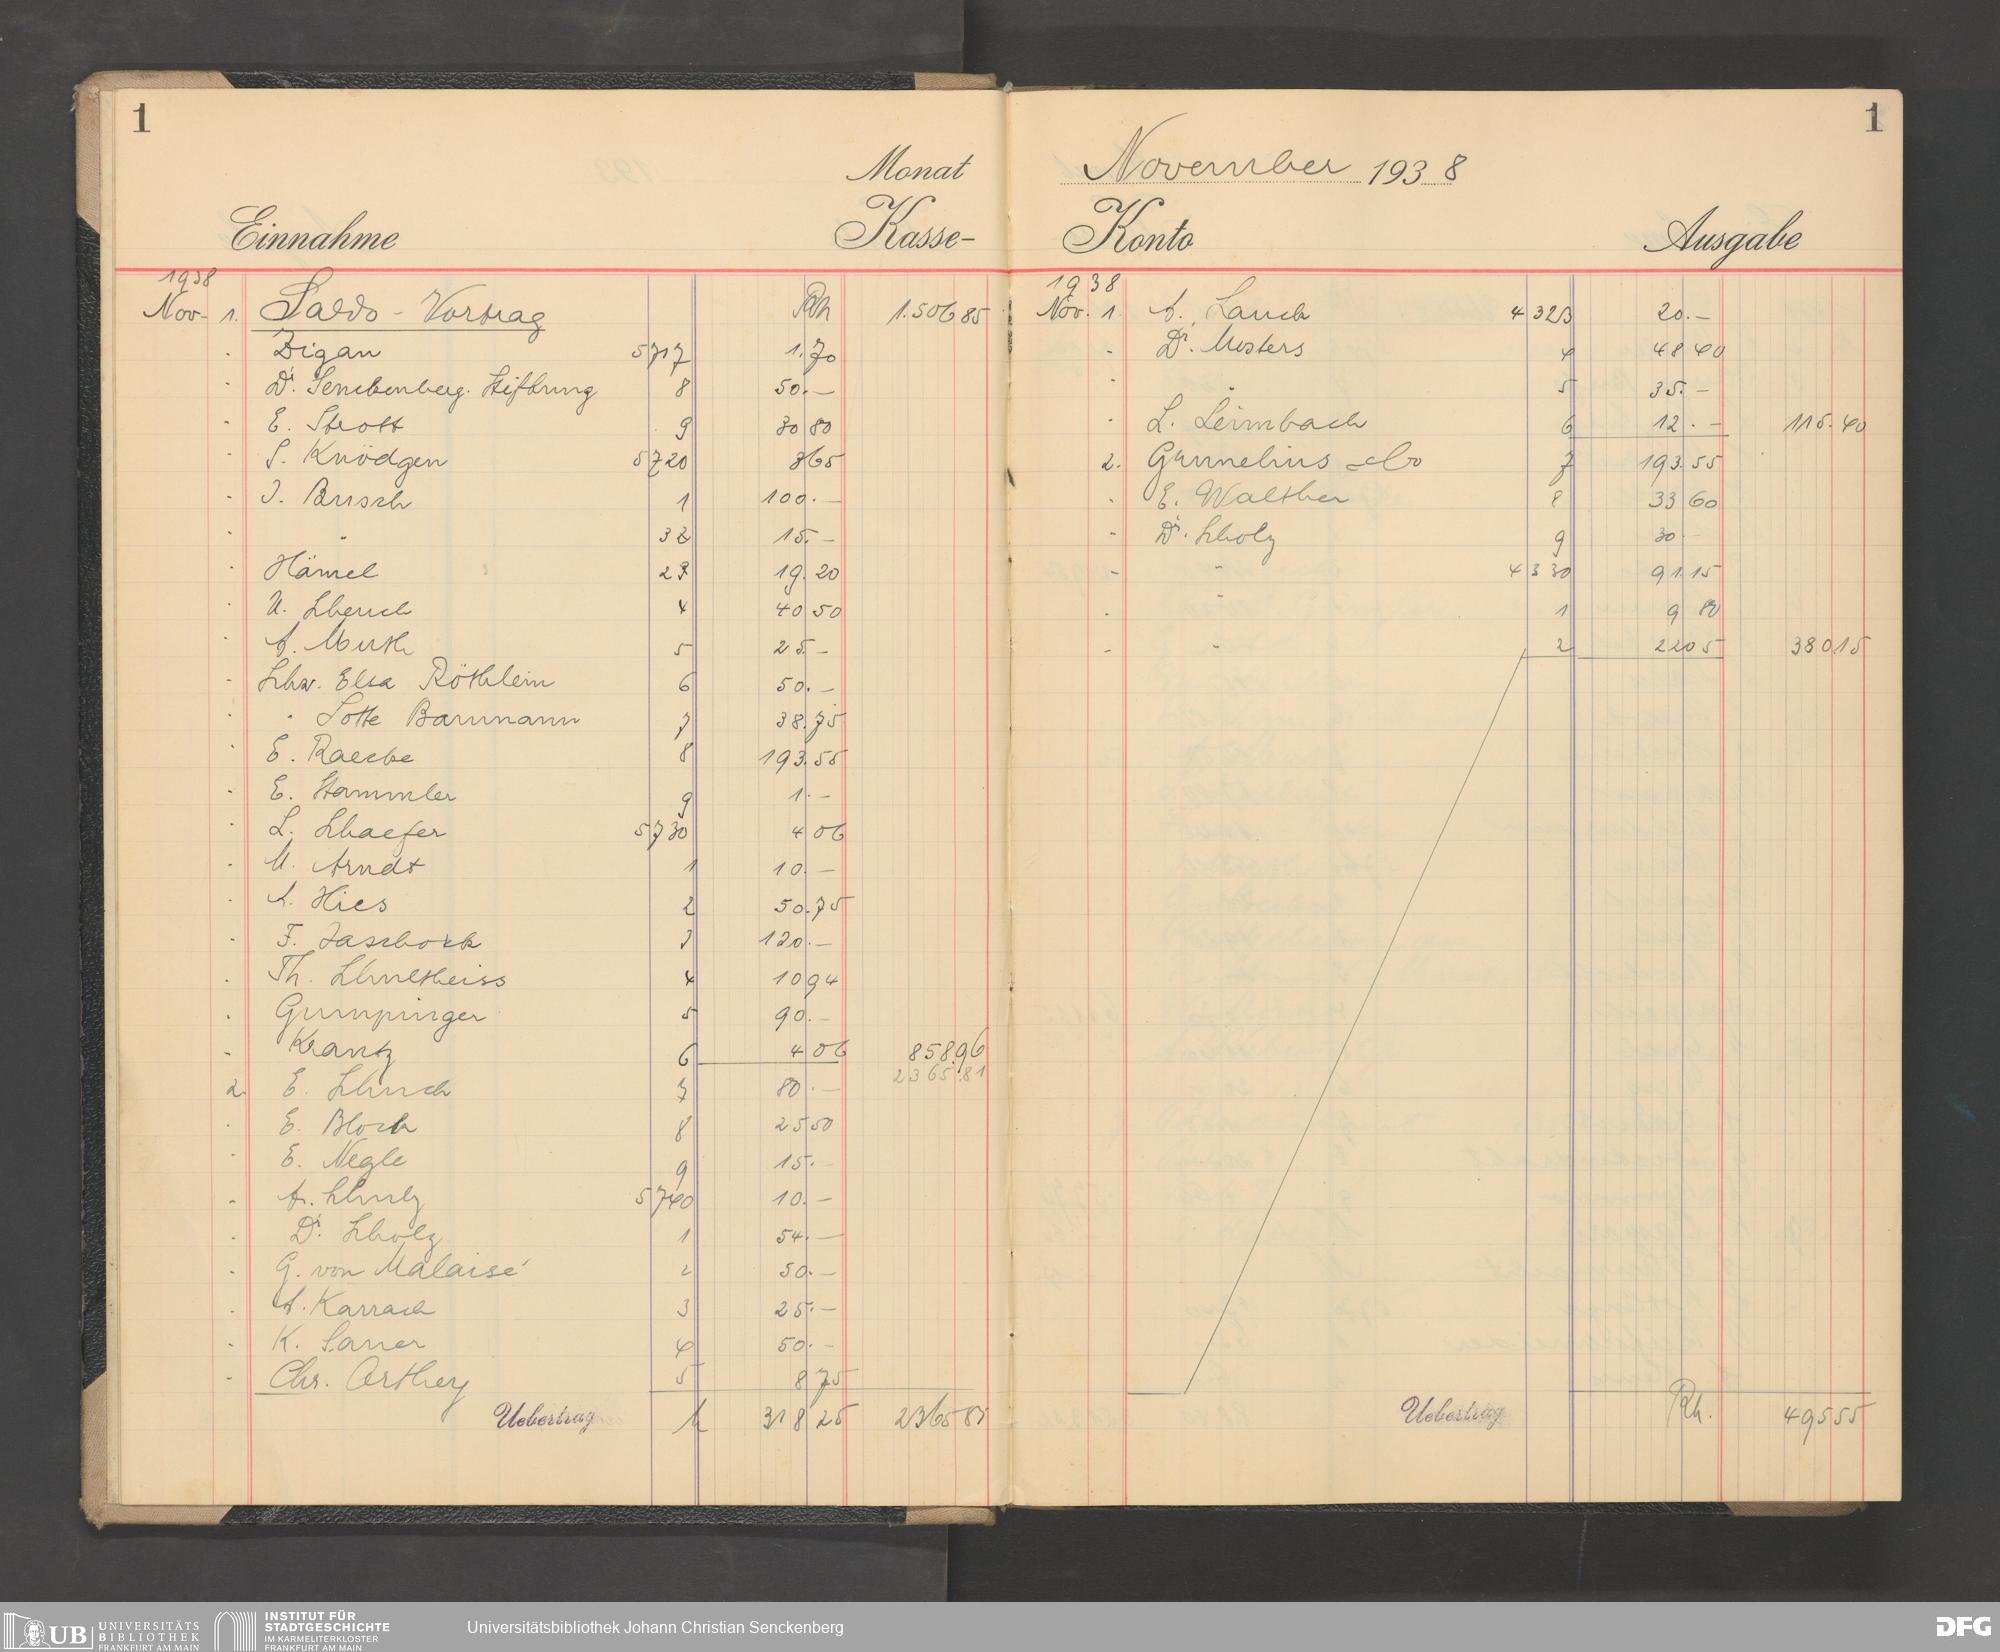 1
Monat
Einnahme Kasse-
1938
Nov. 1. Saldo-Vortrag Rm 1.506 85
" Zigan 5717 1.70
" Dr. Senckenberg. Stiftung 8 50.—
" E. Strott 9 30 80
" S. Knödgen 5720 3 65
" J. Busch 1 100.—
" " 32 15.—
" Hämel 19.20
" U. Schenck 4 40 50
" A. Muth 5 25.—
" Schw. Elsa Röthlein 6 50.—
" " Lotte Baumann 7 38.75
" E. Raecke 8 193.55
" E. Stammler 9 1.—
" L. Schaefer 5730 4 06
" M. Arndt 1 10.—
" A. Hies 2 50.75
" F. Jaschock 3 120.—
" Th. Schultheiss 4 10 94
" Gumpinger 5 90.—
" Krantz 6 4 06 858.96
2365.81
2. E. Schuch 7 80.—
" E. Block 8 25 50
" E. Negle 9 15.—
" A. Schulz 5740 10.—
" Dr. Scholz 1 54.—
" G. von Malaisé 2 50.—
" A. Karrach 3 25.—
" K. Sauer 4 50.—
" Chr. Orthey 5 8 75
Uebertrag 318 25 2365 81
1
November 1938
Konto Ausgabe
1938
Nov. 1. A. Lauck 4323 20.—
" Dr. Mosters 4 48 40
" " 5 35.—
" L. Leimbach 6 12.— 115.40
2. Grunelius & Co 7 193.55
" E. Walther 8 33 60
" Dr. Scholz 9 30.—
" " 4330 91.15
" " 1 9 80
" " 2 22 05 380 15
Uebertrag Rm. 495 55
UB UNIVERSITÄTS
BIBLIOTHEK
FRANKFURT AM MAIN
INSTITUT FÜR
STADTGESCHICHTE
IM KARMELITERKLOSTER
FRANKFURT AM MAIN
Universitätsbibliothek Johann Christian Senckenberg
DFG